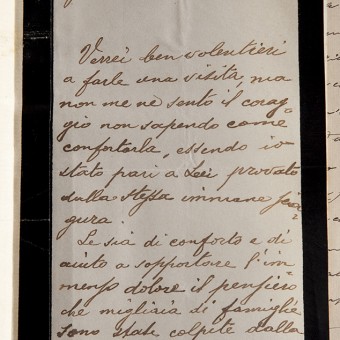 Verrei ben volentieri
a farle una visita, ma
non me ne sento il corag=
gio non sapendo come
confortarla, essendo io
stato pari a Lei provato
dalla stessa immane scia=
gura.
Le sia di conforto e di
aiuto a sopportare l'im=
menso dolore il pensiero
che migliaia di famiglie
sono state colpite dalla